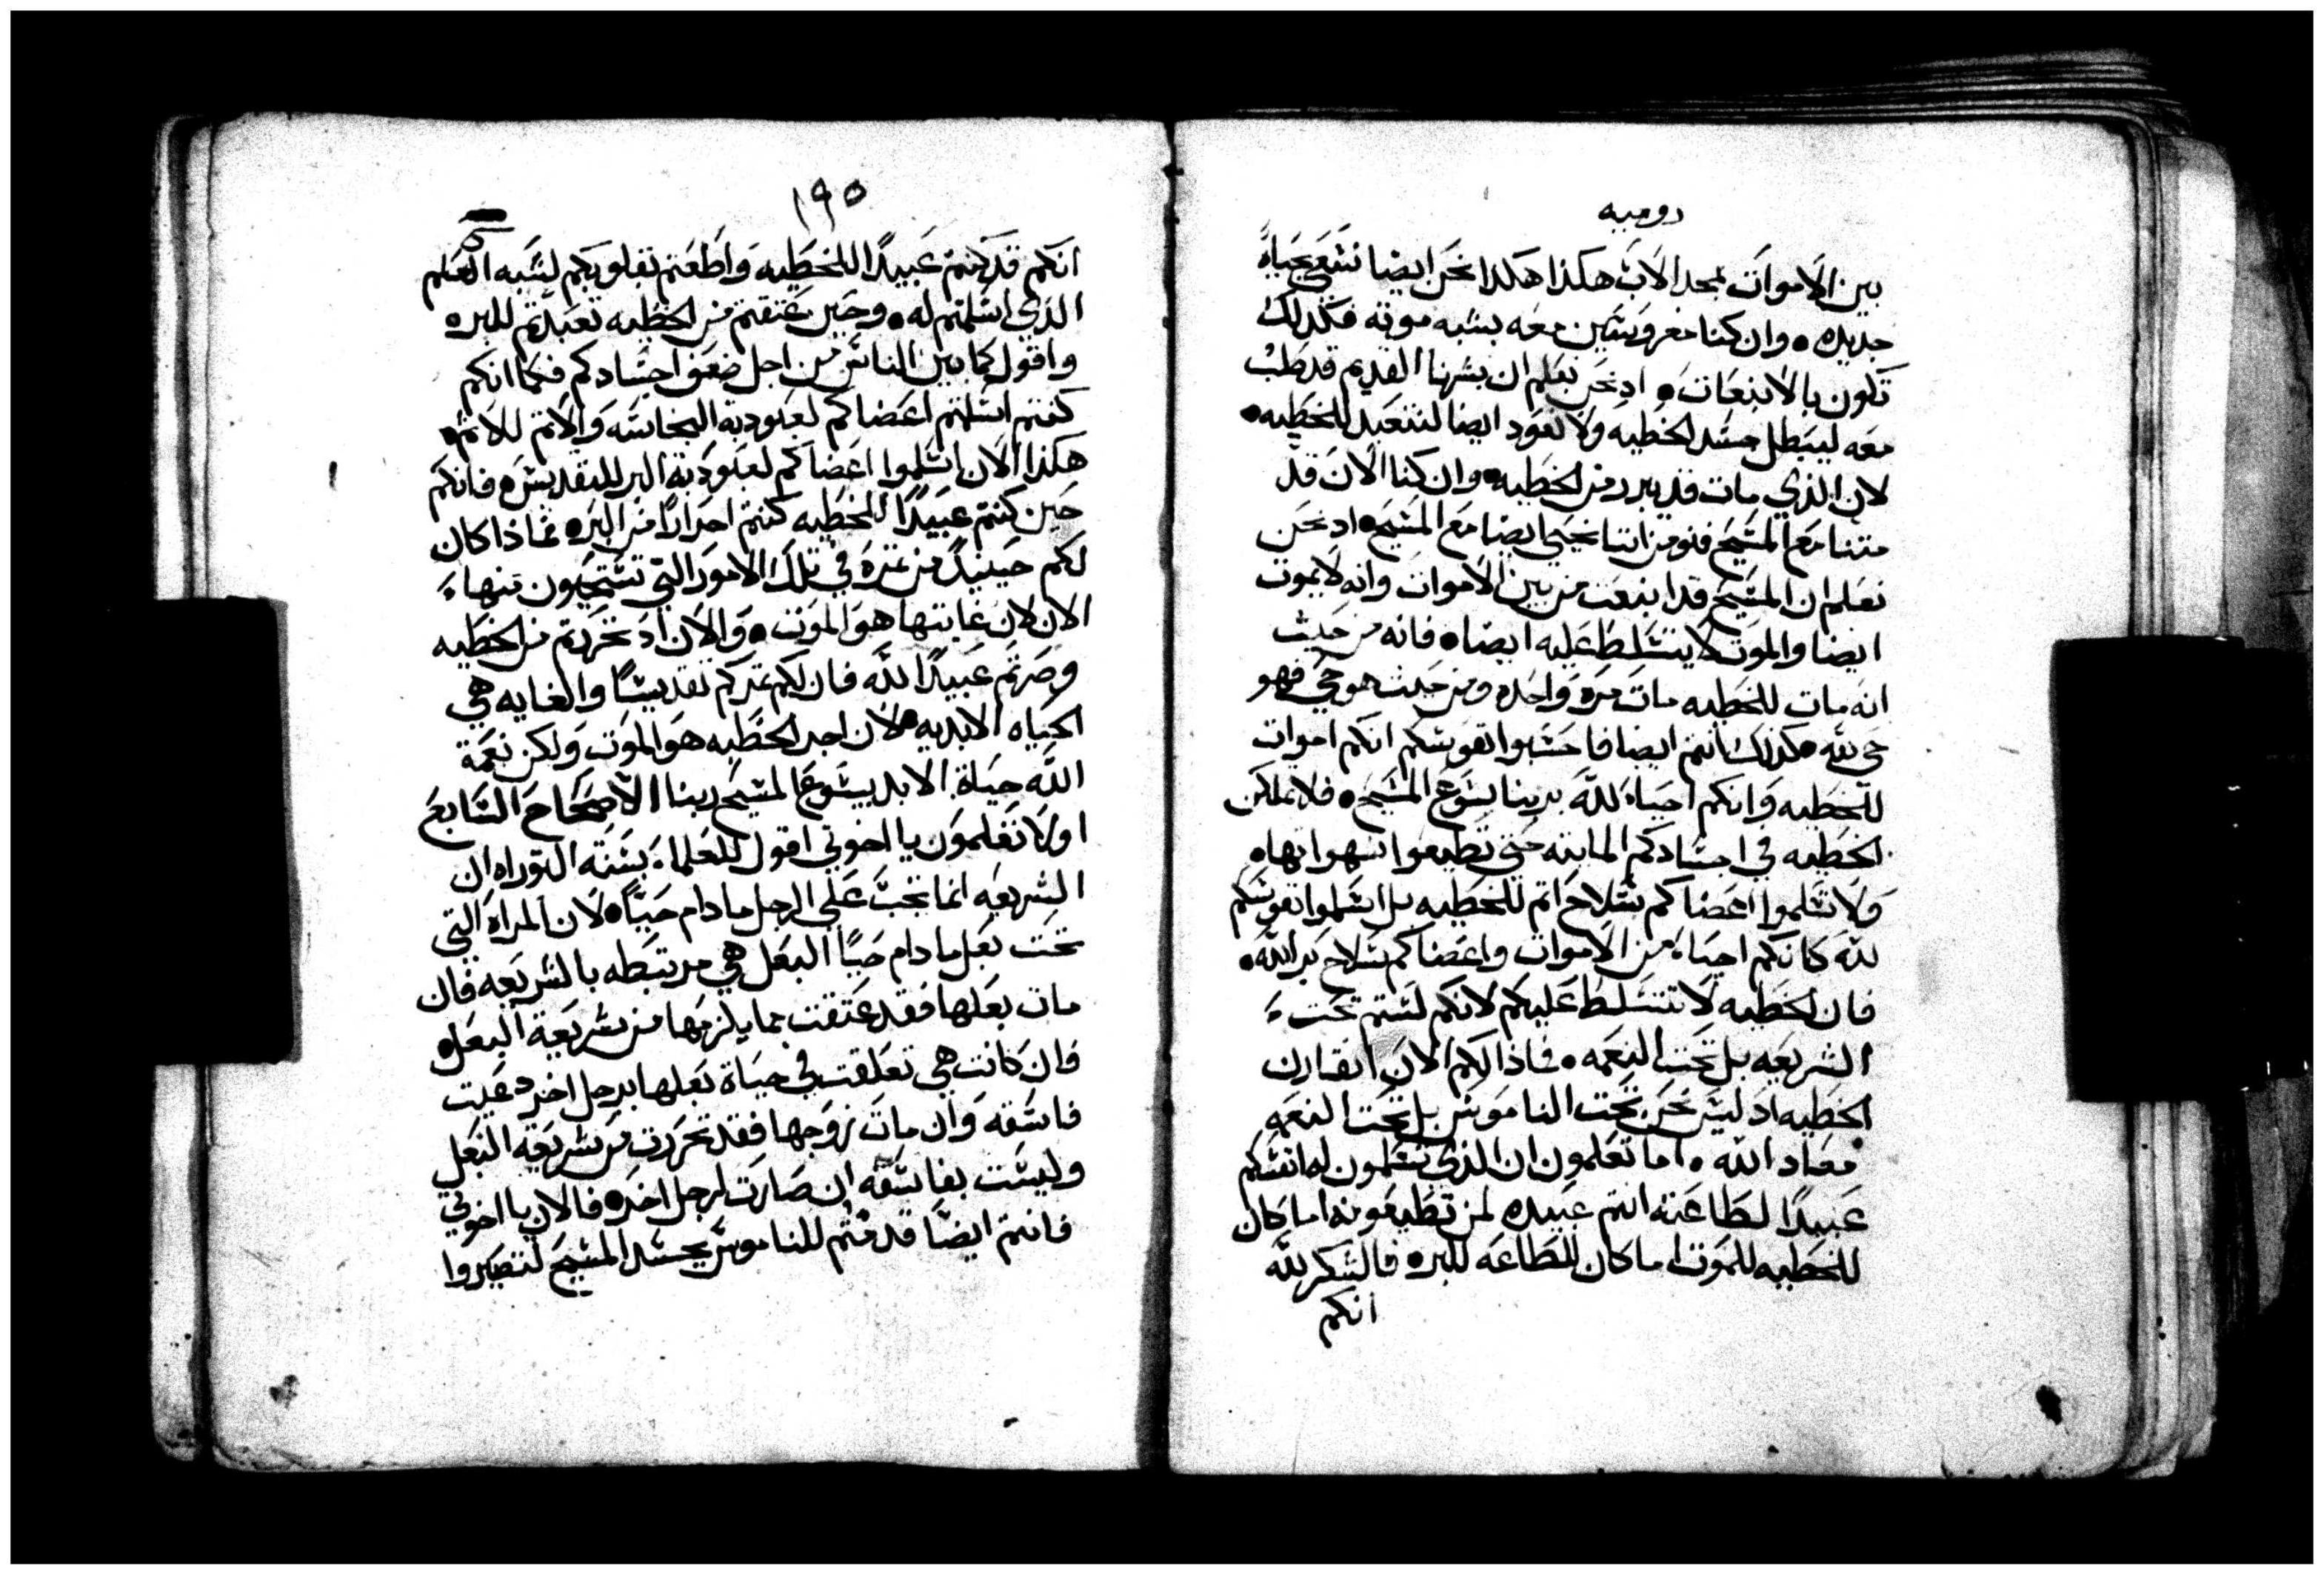 روميه
بين الاموات بمجد الاب هكذا هكذا نحن ايضا نسعي بحياة
جديده • وان كنا مغروسين معه بشبه موته فكذلك
تكون بالانبعاث • اد نحن نعلم ان بشرنا القديم قد صلب
معه ليبطل جسد الخطيه ولا نعود ايضا لنتعبد للخطيه •
لان الذي مات قد تبرر من الخطيه • وان كنا الان قد
متنا مع المسيح فنومن اننا نحيي ايضا مع المسيح • اد نحن
نعلم ان المسيح قد انبعت من بين الاموات وانه لا يموت
ايضا والموت لا يتسلط عليه ايضا • فانه من حيث
انه مات للخطيه مات مره واحده ومن حيث هو حي فهو
حي لله • كذلك انتم ايضا فاحسبوا نفوسكم انكم اموات
للخطيه وانكم احياء لله بربنا يسوع المسيح • فلا تملكن
الخطيه في اجسادكم المايته حتي تطيعوا شهواتها •
ولا تسلموا اعضاكم سلاح اتم للخطيه بل اسلموا نفوسكم
لله كانكم احياء من الاموات واعضاكم سلاح بر الله •
فان الخطيه لا تتسلط عليكم لانكم لستم تحت
الشريعه بل تحت النعمه • فماذا لكم الان انقارف
الخطيه اد ليس نحن تحت الناموس بل تحت النعمه
معاد الله • اما تعلمون ان الذي تسلمون له انفسكم
عبيدا لطاعته انتم عبيده لمن تطيعونه اما كان
للخطيه للموت اما كان للطاعه للبر • فالشكر لله
انكم
١٩٥
انكم قد كنتم عبيدا للخطيه واطعتم بقلوبكم لشبه العلم
الذي اسلمتم له • وحين عتقتم من الخطيه تعبدتم للبر •
واقول كما بين الناس من اجل ضعف اجسادكم فكما انكم
كنتم اسلمتم اعضاكم لعبودية النجاسه والاتم للاتم •
هكذا الان اسلموا اعضاكم لعبودية البر للتقديس • فانكم
حين كنتم عبيدا للخطيه كنتم احرارا من البر • فماذا كان
لكم حينيد من تمره في تلك الامور التي تستحيون منها
الان لان غايتها هو الموت • والان اد تحررتم من الخطيه
وصرتم عبيدا لله فان لكم تمركم تقديسا والغايه هي
الحياه الابديه • لان اجر الخطيه هو الموت ولكن نعمة
الله حياة الابد بيسوع المسيح ربنا الاصحاح السابع
اولا تعلمون يا اخوتي اقول للعلماء بسنة التوراه ان
الشريعه انما تجب علي الرجل ما دام حيا • لان المراه التي
تحت بعل ما دام حيا البعل هي مرتبطه بالشريعه فان
مات بعلها فقد عتقت مما يلزمها من شريعة البعل •
فان كانت هي تعلقت في حياة بعلها برجل اخر دعيت
فاسقه وان مات زوجها فقد تحررت من شريعة البعل
وليست بفاسقه ان صارت لرجل اخر • فالان يا اخوتي
فانتم ايضا قد متم للناموس بجسد المسيح لتصيروا